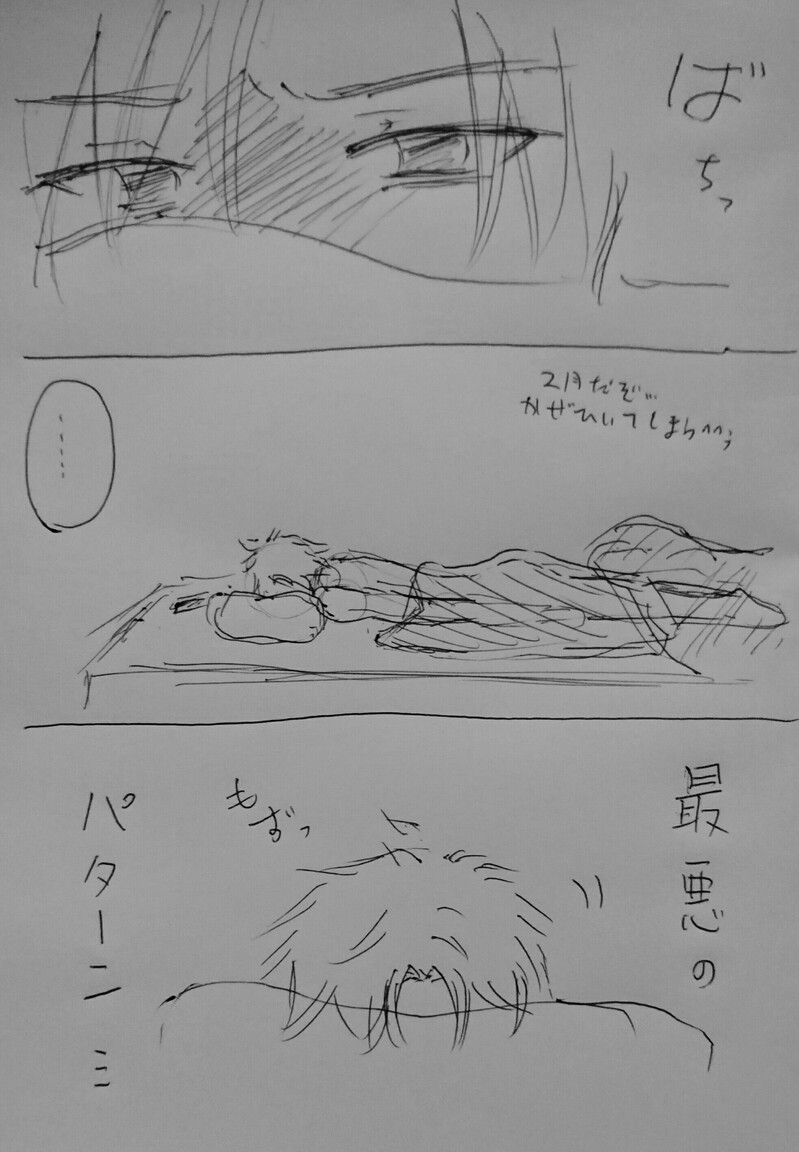 ばちっ
2月だぞ…
かぜひいてしまうべ;
……
最悪の
もぞっ
パターンミ